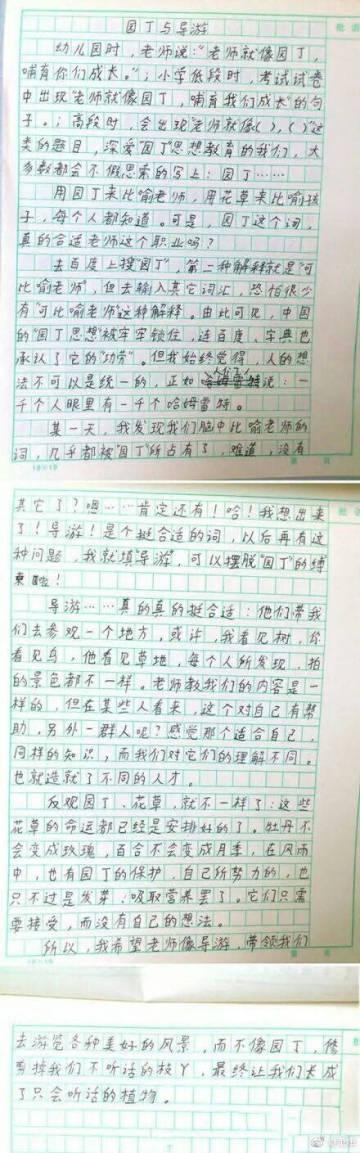 园丁与导游
幼儿园时，老师说：“老师就像园丁，
哺育你们成长。”；小学低段时，考试试卷
中出现“老师就像园丁，哺育我们成长”的句
子。；高段时，会出现“老师就像( )，( )”这
类的题目，深爱“园丁”思想教育的我们，大
多数都会不假思索的写上：园丁……
用园丁来比喻老师，用花草来比喻孩
子，每个人都知道。可是，园丁这个词，
真的合适老师这个职业吗？
去百度上搜“园丁”，第二种解释就是“可
比喻老师”，但去输入其它词汇，恐怕很少
有“可比喻老师”这种解释。由此可见，中国
的“园丁思想”被牢牢锁住，连百度、字典也
承认了它的“功劳”。但我始终觉得，人的想
法不可以是统一的，正如说：一
千个人眼里有一千个哈姆雷特。
某一天，我发现我们脑中比喻老师的
词，几乎都被“园丁”所占有了，难道，没有
其它了？嗯……肯定还有！哈！我想出来
了！导游！是个挺合适的词，以后再有这
种问题，我就填导游，可以摆脱“园丁”的缚
束啦！
导游……真的真的挺合适：他们带我
们去参观一个地方，或许，我看见树，你
看见鸟，他看见草地，每个人所发现，拍
的景色都不一样。老师教我们的内容是一
样的，但在某些人看来，这个对自己有帮
助，另外一群人呢？感觉那个适合自己，
同样的知识，而我们对它们的理解不同。
也就造就了不同的人才。
反观园丁、花草，就不一样了：这些
花草的命运都已经是安排好的了。牡丹不
会变成玫瑰，百合不会变成月季，在风雨
中，也有园丁的保护，自己所努力的，也
只不过是发芽、吸取营养罢了。它们只需
要接受，而没有自己的想法。
所以，我希望老师像导游，带领我们
去游览各种美好的风景，而不像园丁，修
剪掉我们不听话的枝丫，最终让我们长成
了只会听话的植物。